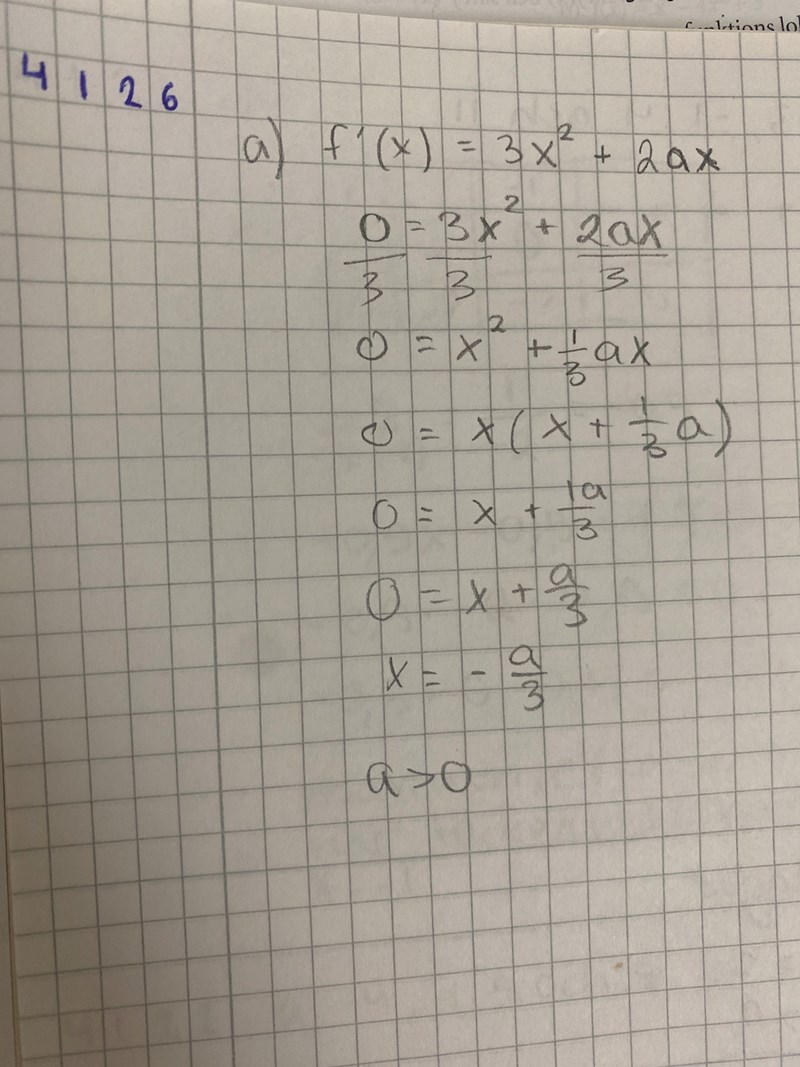 funktions lo
4126
a) f'(x) = 3x² + 2ax
0/3 = 3x²/3 + 2ax/3
0 = x² + 1/3 ax
0 = x(x + 1/3 a)
0 = x + 1a/3
0 = x + a/3
x = - a/3
a > 0